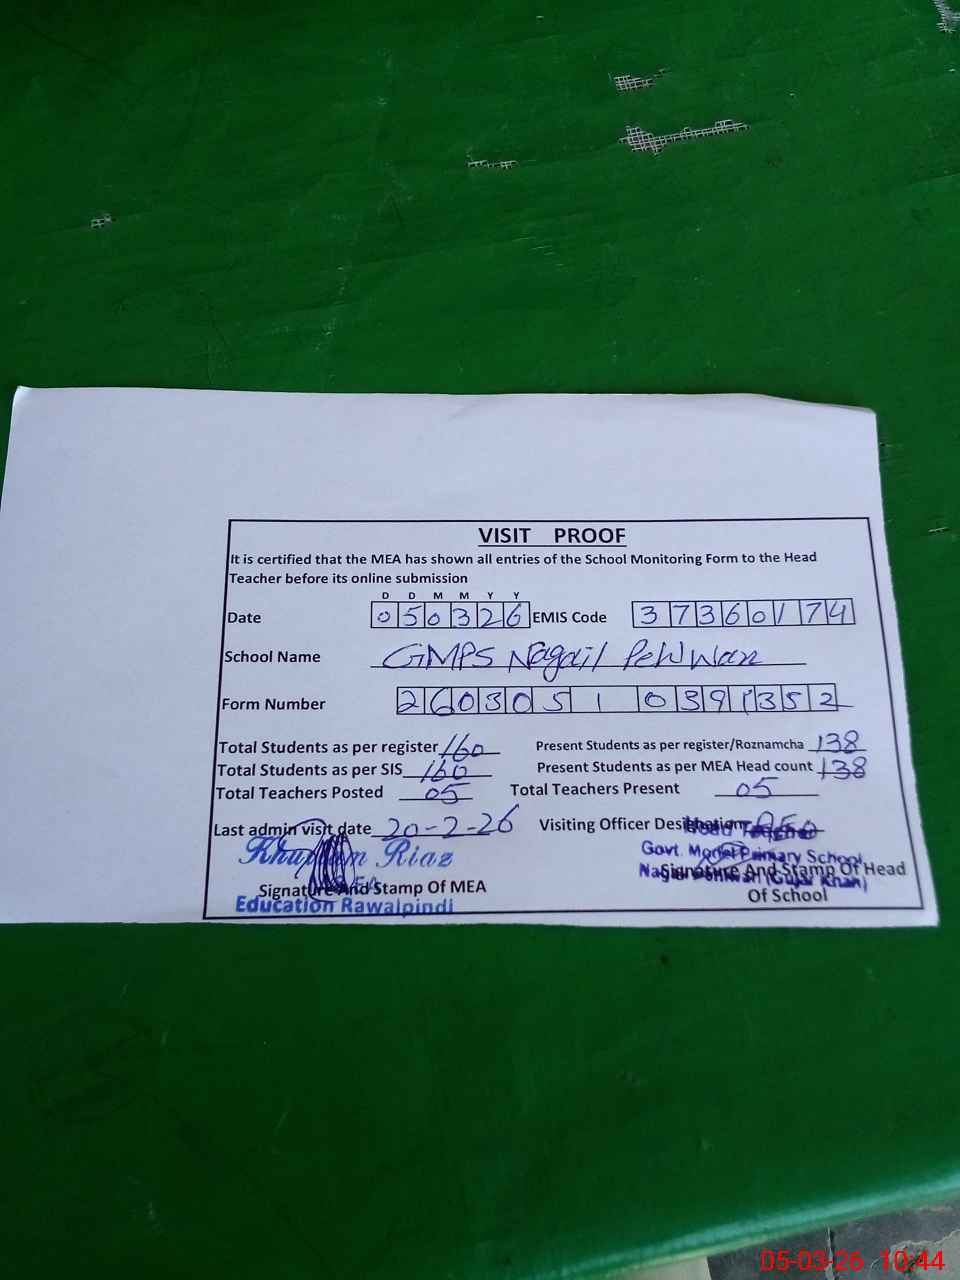 VISIT PROOF
It is certified that the MEA has shown all entries of the School Monitoring Form to the Head
Teacher before its online submission
D D M M Y Y
Date 050326 EMIS Code 37360174
School Name GMPS Nagail
Form Number 26030510391352
Total Students as per register 160 Present Students as per register/Roznamcha 138
Total Students as per SIS 160 Present Students as per MEA Head count 138
Total Teachers Posted 05 Total Teachers Present 05
Last admin visit date 20-2-26 Visiting Officer Designation AEO
Head Teacher
Khurram Riaz
Govt. Model Primary School
(Gujar Khan)
MEA
Signature And Stamp Of MEA Signature And Stamp Of Head
Of School
Education Rawalpindi
05-03-26 10:44